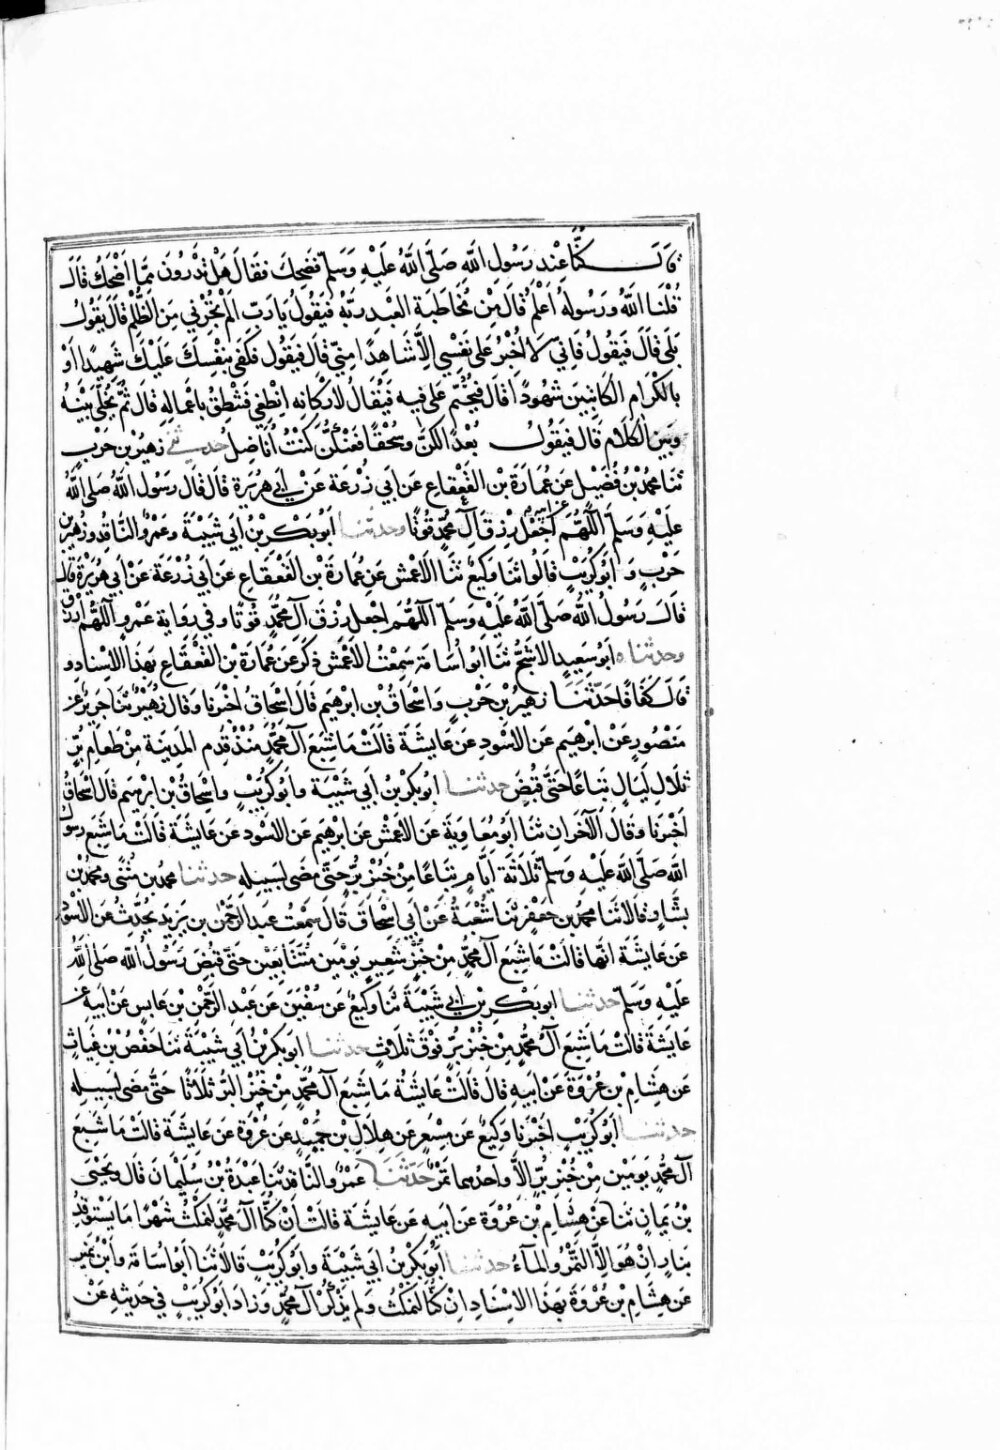 قال كنا عند رسول الله صلى الله عليه وسلم فضحك فقال هل تدرون مما اضحك قال
قلنا الله ورسوله اعلم قال من مخاطبة العبد ربه فيقول يا رب الم تجرني من الظلم قال يقول
بلى قال فيقول فاني لا اجيز على نفسي الا شاهدا مني قال فيقول فكفى بنفسك عليك شهيدا او
بالكرام الكاتبين شهودا قال فيختم على فيه فيقال لاركانه انطقي فتنطق باعماله قال ثم يخلى بينه
وبين الكلام قال فيقول بعدا لكن وسحقا فعنكن كنت اناضل حدثني زهير بن حرب
ثنا محمد بن فضيل عن عمارة بن القعقاع عن ابي زرعة عن ابي هريرة قال قال رسول الله صلى الله
عليه وسلم اللهم اجعل رزق آل محمد قوتا وحدثنا ابو بكر بن ابي شيبة وعمرو الناقد وزهير بن
حرب وابو كريب قالوا ثنا وكيع ثنا الاعمش عن عمارة بن القعقاع عن ابي زرعة عن ابي هريرة قال
قال رسول الله صلى الله عليه وسلم اللهم اجعل رزق آل محمد قوتا وفي رواية عمرو اللهم ارزق
وحدثناه ابو سعيد الاشج ثنا ابو اسامة سمعت الاعمش ذكر عن عمارة بن القعقاع بهذا الاسناد و
قال كفافا حدثنا زهير بن حرب واسحاق بن ابرهيم قال اسحاق اخبرنا وقال زهير ثنا جرير عن
منصور عن ابرهيم عن الاسود عن عايشة قالت ما شبع آل محمد منذ قدم المدينة من طعام بر
ثلاث ليال تباعا حتى قبض حدثنا ابو بكر بن ابي شيبة وابو كريب واسحاق بن ابرهيم قال اسحاق
اخبرنا وقال الآخران ثنا ابو معاوية عن الاعمش عن ابرهيم عن الاسود عن عايشة قالت ما شبع رسول
الله صلى الله عليه وسلم ثلاثة ايام تباعا من خبز بر حتى مضى لسبيله حدثنا محمد بن مثنى ومحمد بن
بشار قالا ثنا محمد بن جعفر ثنا شعبة عن ابي اسحاق قال سمعت عبد الرحمن بن يزيد يحدث عن الاسود
عن عايشة انها قالت ما شبع آل محمد من خبز شعير يومين متتابعين حتى قبض رسول الله صلى الله
عليه وسلم حدثنا ابو بكر بن ابي شيبة ثنا وكيع عن سفين عن عبد الرحمن بن عابس عن ابيه عن
عايشة قالت ما شبع آل محمد من خبز بر فوق ثلاث حدثنا ابو بكر بن ابي شيبة ثنا حفص بن غياث
عن هشام بن عروة عن ابيه قال قالت عايشة ما شبع آل محمد من خبز البر ثلاثا حتى مضى لسبيله
حدثنا ابو كريب اخبرنا وكيع عن مسعر عن هلال بن حميد عن عروة عن عايشة قالت ما شبع
آل محمد يومين من خبز بر الا واحدهما تمر حدثنا عمرو الناقد ثنا عبدة بن سليمان قال ويحيى
بن يمان ثنا عن هشام بن عروة عن ابيه عن عايشة قالت ان كنا آل محمد لنمكث شهرا ما نستوقد
بنار ان هو الا التمر والمآء حدثنا ابو بكر بن ابي شيبة وابو كريب قالا ثنا ابو اسامة وابن نمير
عن هشام بن عروة بهذا الاسناد ان كنا لنمكث ولم يذكر آل محمد وزاد ابو كريب في حديثه عن